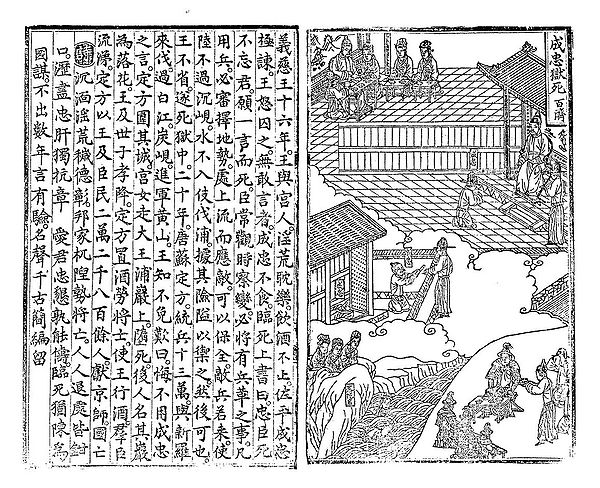 成忠獄死 百濟
義慈王十六年王與宮人淫荒耽樂飲酒不止佐平成忠
極諫。王怒囚之。無敢言者。成忠不食。臨死上書曰。忠臣死
不忘君。願一言而死。臣常觀時察變。必將有兵革之事。凡
用兵。必審擇地勢。處上流而應敵。可以保全。敵兵若來。使
陸不過沉峴。水不入伎伐浦。據其險隘以禦之。然後可也。
王不省。遂死獄中。二十年。唐蘇定方統兵十三萬。與新羅
來伐。過白江。炭峴。進軍黃山。王知不免。歎曰。悔不用成忠
之言。定方圍其城。宮女走大王浦巖上。墮死。後人名其巖
為落花。王及世子孝降。定方置酒勞將士。使王行酒。羣臣
流涕。定方以王及臣民二萬二千八百餘人。獻京師。國亡
沉湎淫荒穢德彰。邦家杌隉勢將亡。人人退處皆鉗
口。瀝盡忠肝獨抗章 愛君忠懇孰能儔。臨死猶陳為
國謀。不出數年言有驗。名聲千古簡編留